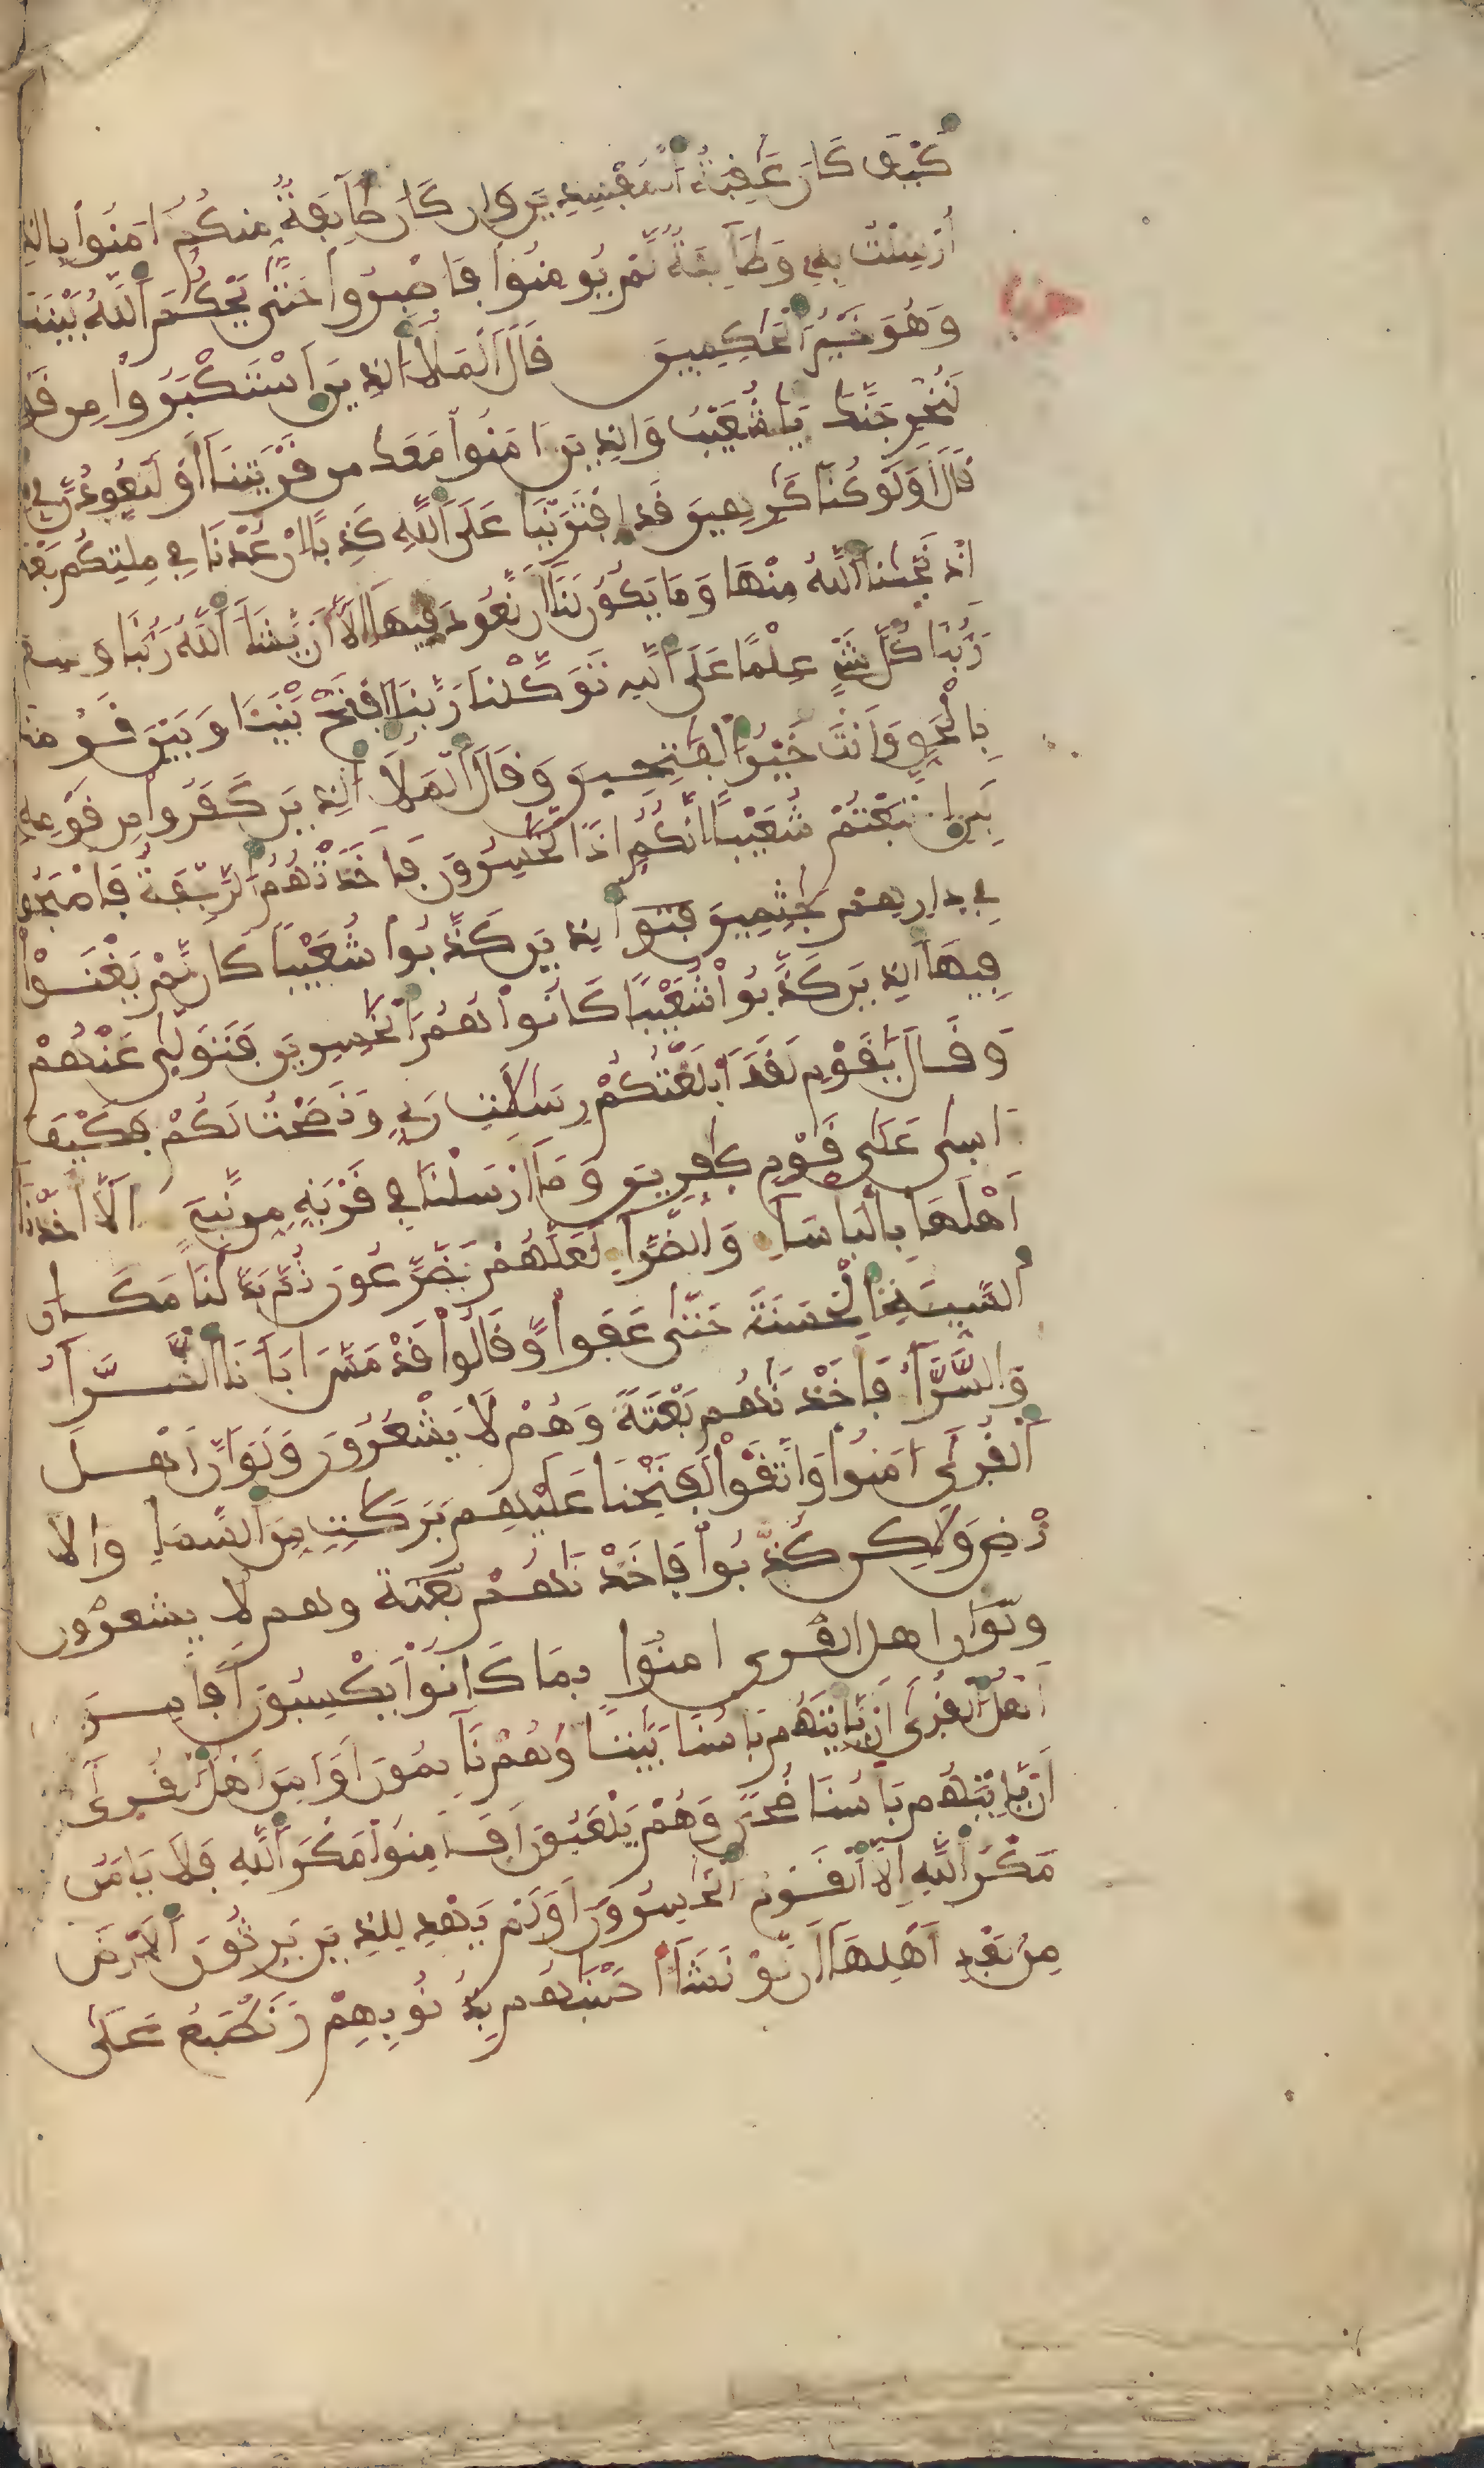 كَيْفَ كَانَ عَٰقِبَةُ اُلْمُفْسِدِينَ وَإِن كَانَ طَآئِفَةٌ مِّنكُمُۥٓ ءَامَنُواْ بِالذِے
أُرْسِلْتُ بِهِۦ وَطَآئِفَةٌ لَّمْ يُومِنُواْ فَاصْبِرُواْ حَتَّىٰ يَحْكُمَ اَللَّهُ بَيْنَنَا
وَهُوَ خَيْرُ اُلْحَٰكِمِينَ قَالَ اَلْمَلَأُ اُلذِينَ اَسْتَكْبَرُواْ مِن قَوْ
لَنُخْرِجَنَّكَ يَٰشُعَيْبُ وَالذِينَ ءَامَنُواْ مَعَكَ مِن قَرْيَتِنَآ أَوْ لَتَعُودُنَّ فِے
قَالَ أَوَلَوْ كُنَّا كَٰرِهِينَ قَدِ اِفْتَرَيْنَا عَلَى اَللَّهِ كَذِبًا اِنْ عُدْنَا فِے مِلَّتِكُم بَعْدَ
إِذْ نَجَّيٰنَا اَللَّهُ مِنْهَا وَمَا يَكُونُ لَنَآ أَن نَّعُودَ فِيهَآ إِلَّآ أَنْ يَّشَآءَ اَللَّهُ رَبُّنَا وَسِعَ
رَبُّنَا كُلَّ شَےْءٍ عِلْمًا عَلَى اَللَّهِ تَوَكَّلْنَا رَبَّنَا اَفْتَحْ بَيْنَنَا وَبَيْنَ قَوْمِنَا
بِالْحَقِّ وَأَنتَ خَيْرُ اُلْفَٰتِحِينَ وَقَالَ اَلْمَلَأُ اُلذِينَ كَفَرُواْ مِن قَوْمِهِۦ
لَئِنِ اِتَّبَعْتُمْ شُعَيْبًا اِنَّكُمُۥٓ إِذًا لَّخَٰسِرُونَ فَأَخَذَتْهُمُ اُلرَّجْفَةُ فَأَصْبَحُواْ
فِے دِارِهِمْ جَٰثِمِينَ اَلذِينَ كَذَّبُواْ شُعَيْبًا كَأَن لَّمْ يَغْنَوْاْ
فِيهَا اَلذِينَ كَذَّبُواْ شُعَيْبًا كَانُواْ هُمُ اُلْخَٰسِرِينَ فَتَوَلَّىٰ عَنْهُمْ
وَقَالَ يَٰقَوْمِ لَقَدَ اَبْلَغْتُكُمْ رِسَٰلَٰتِ رَبِّے وَنَصَحْتُ لَكُمْ فَكَيْفَ
ءَاسِىٰ عَلَىٰ قَوْمٍ كٰفِرِينَ وَمَآ أَرْسَلْنَا فِے قَرْيَةٍ مِّن نَّبِےٓءٍ اِلَّآ أَخَذْنَآ
أَهْلَهَا بِالْبَأْسَآءِ وَالضَّرَّآءِ لَعَلَّهُمْ يَضَّرَّعُونَ ثُمَّ بَدَّلْنَا مَكَانَ
اَلسَّيِّئَةِ اِلْحَسَنَةَ حَتَّىٰ عَفَواْ وَّقَالُواْ قَدْ مَسَّ ءَابَآءَنَا اَلضَّرَّآءُ
وَالسَّرَّآءُ فَأَخَذْنَٰهُم بَغْتَةً وَهُمْ لَا يَشْعُرُونَ وَلَوَ اَنَّ أَهْلَ
اَلْقُرَىٰٓ ءَامَنُواْ وَاتَّقَوْاْ لَفَتَحْنَا عَلَيْهِم بَرَكَٰتٍ مِّنَ اَلسَّمَآءِ وَالَا
رْضِ وَلَٰكِن كَذَّبُواْ فَأَخَذْنَٰهُم بَغْتَةً وهم لا يشعرون
ولَوَان اهل القرى امنُوا بِمَا كَانُواْ يَكْسِبُونَ أَفَأَمِنَ
أَهْلُ اُلْقُرَىٰٓ أَنْ يَّاتِيَهُم بَأْسُنَا بَيَٰتًا وَهُمْ نَآئِمُونَ أَوَ اَمِنَ أَهْلُ اُلْقُرَىٰٓ
أَنْ يَّاتِيَهُم بَأْسُنَا ضُحىً وَهُمْ يَلْعَبُونَ أَفَأَمِنُواْ مَكْرَ اَللَّهِ فَلَا يَامَنُ
مَكْرَ اَللَّهِ إِلَّا اَلْقَوْمُ اُلْخَٰسِرُونَ أَوَلَمْ يَهْدِ لِلذِينَ يَرِثُونَ اَلَارْضَ
مِنۢ بَعْدِ أَهْلِهَآ أَن لَّوْ نَشَآءُ اَصَبْنَٰهُم بِذُنُوبِهِمْ وَنَطْبَعُ عَلَىٰ